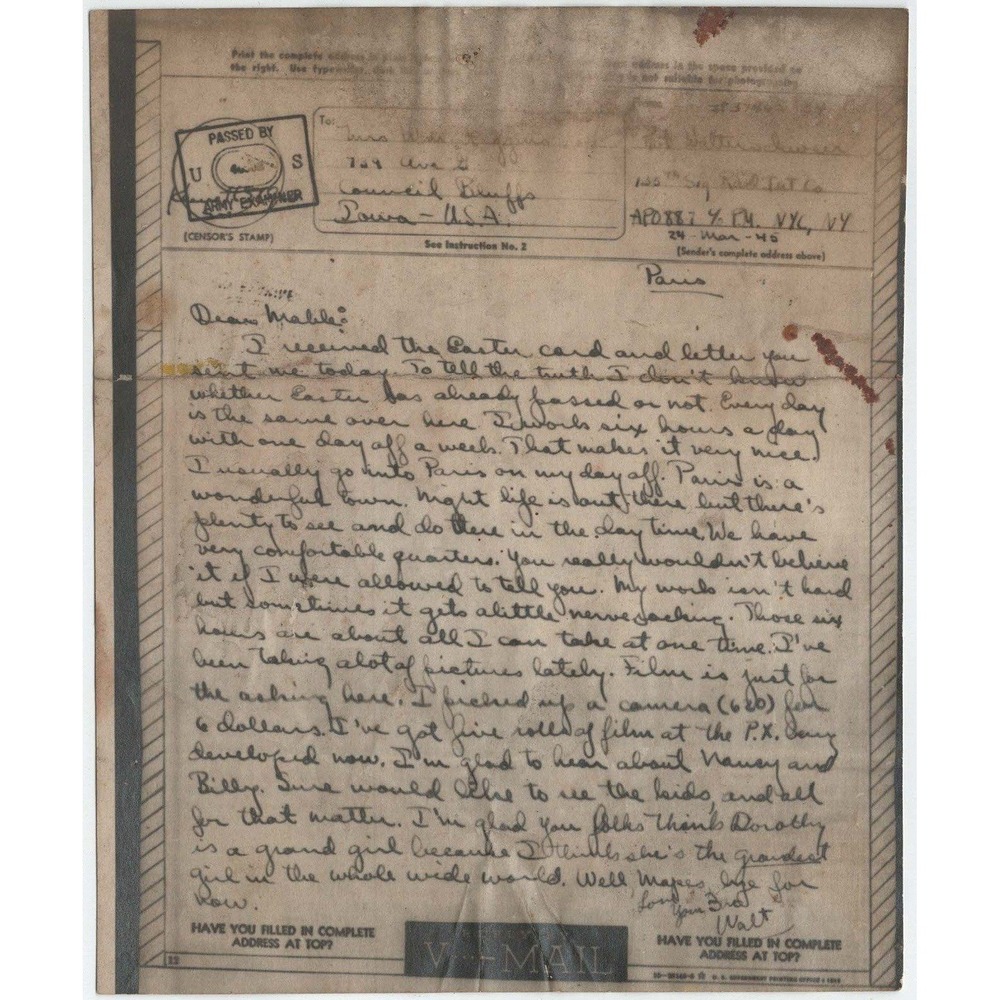 Print the complete address in
the right. Use typewriter, dark
address in the space provided to
is not suitable for photographing
PASSED BY
U S
ARMY EXAMINER
(CENSOR'S STAMP)
To:
Mrs
729 Ave G
Council Bluffs
Iowa - U.S.A.
See Instruction No. 2
From
Pvt
135th Sig Rad Int Co
APO 887 % P.M. NYC, NY
24-Mar-45
(Sender's complete address above)
Paris
Dear Mable:
I received the Easter card and letter you
sent me today. To tell the truth I don't know
whether Easter has already passed or not. Every day
is the same over here. I work six hours a day
with one day off a week. That makes it very nice.
I usually go into Paris on my day off. Paris is a
wonderful town. Night life is out there but there's
plenty to see and do there in the day time. We have
very comfortable quarters. You really wouldn't believe
it if I were allowed to tell you. My work isn't hard
but sometimes it gets a little nerve racking. Those six
hours are about all I can take at one time. I've
been taking a lot of pictures lately. Film is just for
the asking here. I picked up a camera (620) for
6 dollars. I've got five rolls of film at the P.X. being
developed now. I'm glad to hear about Nancy and
Billy. Sure would like to see the kids, and all
for that matter. I'm glad you folks think Dorothy
is a grand girl because I think she's the grandest
girl in the whole wide world. Well bye for
now.
Love
Your Bro
Walt
HAVE YOU FILLED IN COMPLETE
ADDRESS AT TOP?
V···-MAIL
HAVE YOU FILLED IN COMPLETE
ADDRESS AT TOP?
12
U. S. GOVERNMENT PRINTING OFFICE